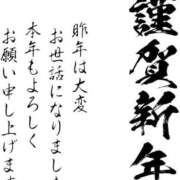 謹賀新年
昨年は大変
お世話になりました
本年もよろしく
お願い申し上げま